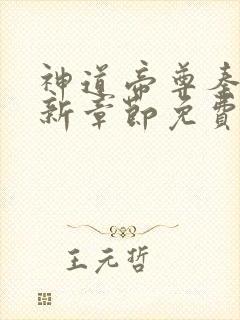 神道帝尊秦
新章节免費
王元哲